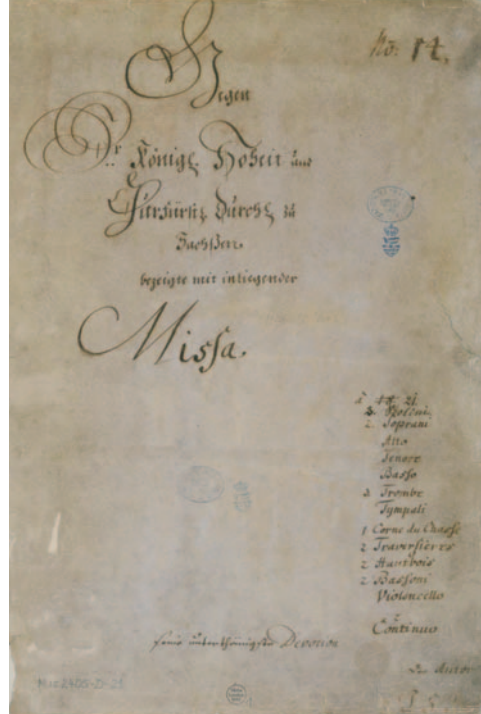 No: 14.
Gegen
Sr. Königl. Hoheit und
Churfürstl. Durchl. zu
Sachßen
bezeigte mit inliegender
Missa
à
Violini
2. Soprani
Alto
Tenore
Basso
3 Trombe
Tympali
1 Corne du Chasse
2 Traversieres
2 Hautbois
2 Bassoni
Violoncello
e
Continuo
seine unterthänigste Devotion
der Autor
J. S.
Mus 2405-D-21